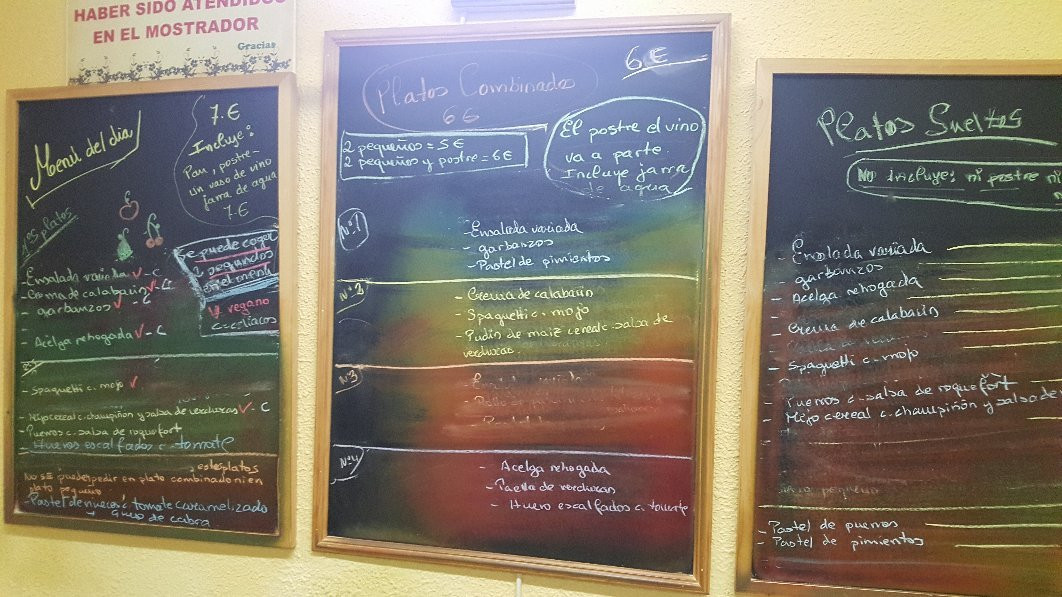 HABER SIDO ATENDIDOS
EN EL MOSTRADOR
Gracias
Menú del dia
7.€
Incluye:
Pan, postre-
Un vaso de vino
jarra de agua
7.€
1os platos
Se puede coger
2 segundos
en el menú
V. vegano
C-celiacos
- Ensalada variada V - C
- Crema de calabacin V - C
- garbanzos V - C
- Acelga rehogada V - C
- Spaguetti c. mojo V
- Mijo cereal c. champiñon y salsa de verduras V - C
- Puerros c. salsa de roquefort
- Huevos escalfados c. tomate
estos platos
No se pueden pedir en plato combinado ni en
plato pequeño
- Pastel de nueces c tomate caramelizado
y queso de cabra
6€
Platos Combinados
6€
2 pequeños = 5€
2 pequeños y postre = 6€
El postre el vino
va a parte.
Incluye jarra
de agua
Nº1
- Ensalada variada
- garbanzos
- Pastel de pimientos
Nº2
- Crema de calabacin
- Spaguetti c. mojo
- Pudin de maiz cereal c. salsa de
verduras
Nº3
Nº4
- Acelga rehogada
- Paella de verduras
- Huevo escalfados c. tomate
Platos Sueltos
No incluye: ni postre ni
- Ensalada variada
- garbanzos
- Acelga rehogada
- Crema de calabacin
- Spaguetti c. mojo
- Puerros c. salsa de roquefort
- Mijo cereal c. champiñon y salsa de
pequeño
- Pastel de puerros
- Pastel de pimientos